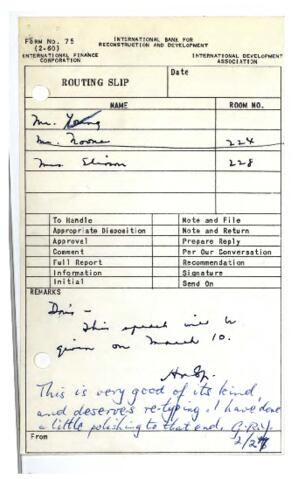 FORM No. 75
(2-60)
INTERNATIONAL BANK FOR
RECONSTRUCTION AND DEVELOPMENT
INTERNATIONAL FINANCE
CORPORATION
INTERNATIONAL DEVELOPMENT
ASSOCIATION
ROUTING SLIP
Date
NAME
ROOM NO.
Mr. Young
Mr. Noone 224
Mrs. Eliason 228
To Handle Note and File
Appropriate Disposition Note and Return
Approval Prepare Reply
Comment Per Our Conversation
Full Report Recommendation
Information Signature
Initial Send On
REMARKS
Doris -
This speech will be
given on March 10.
This is very good of its kind,
and deserves re-typing. I have done
a little polishing to that end.
From